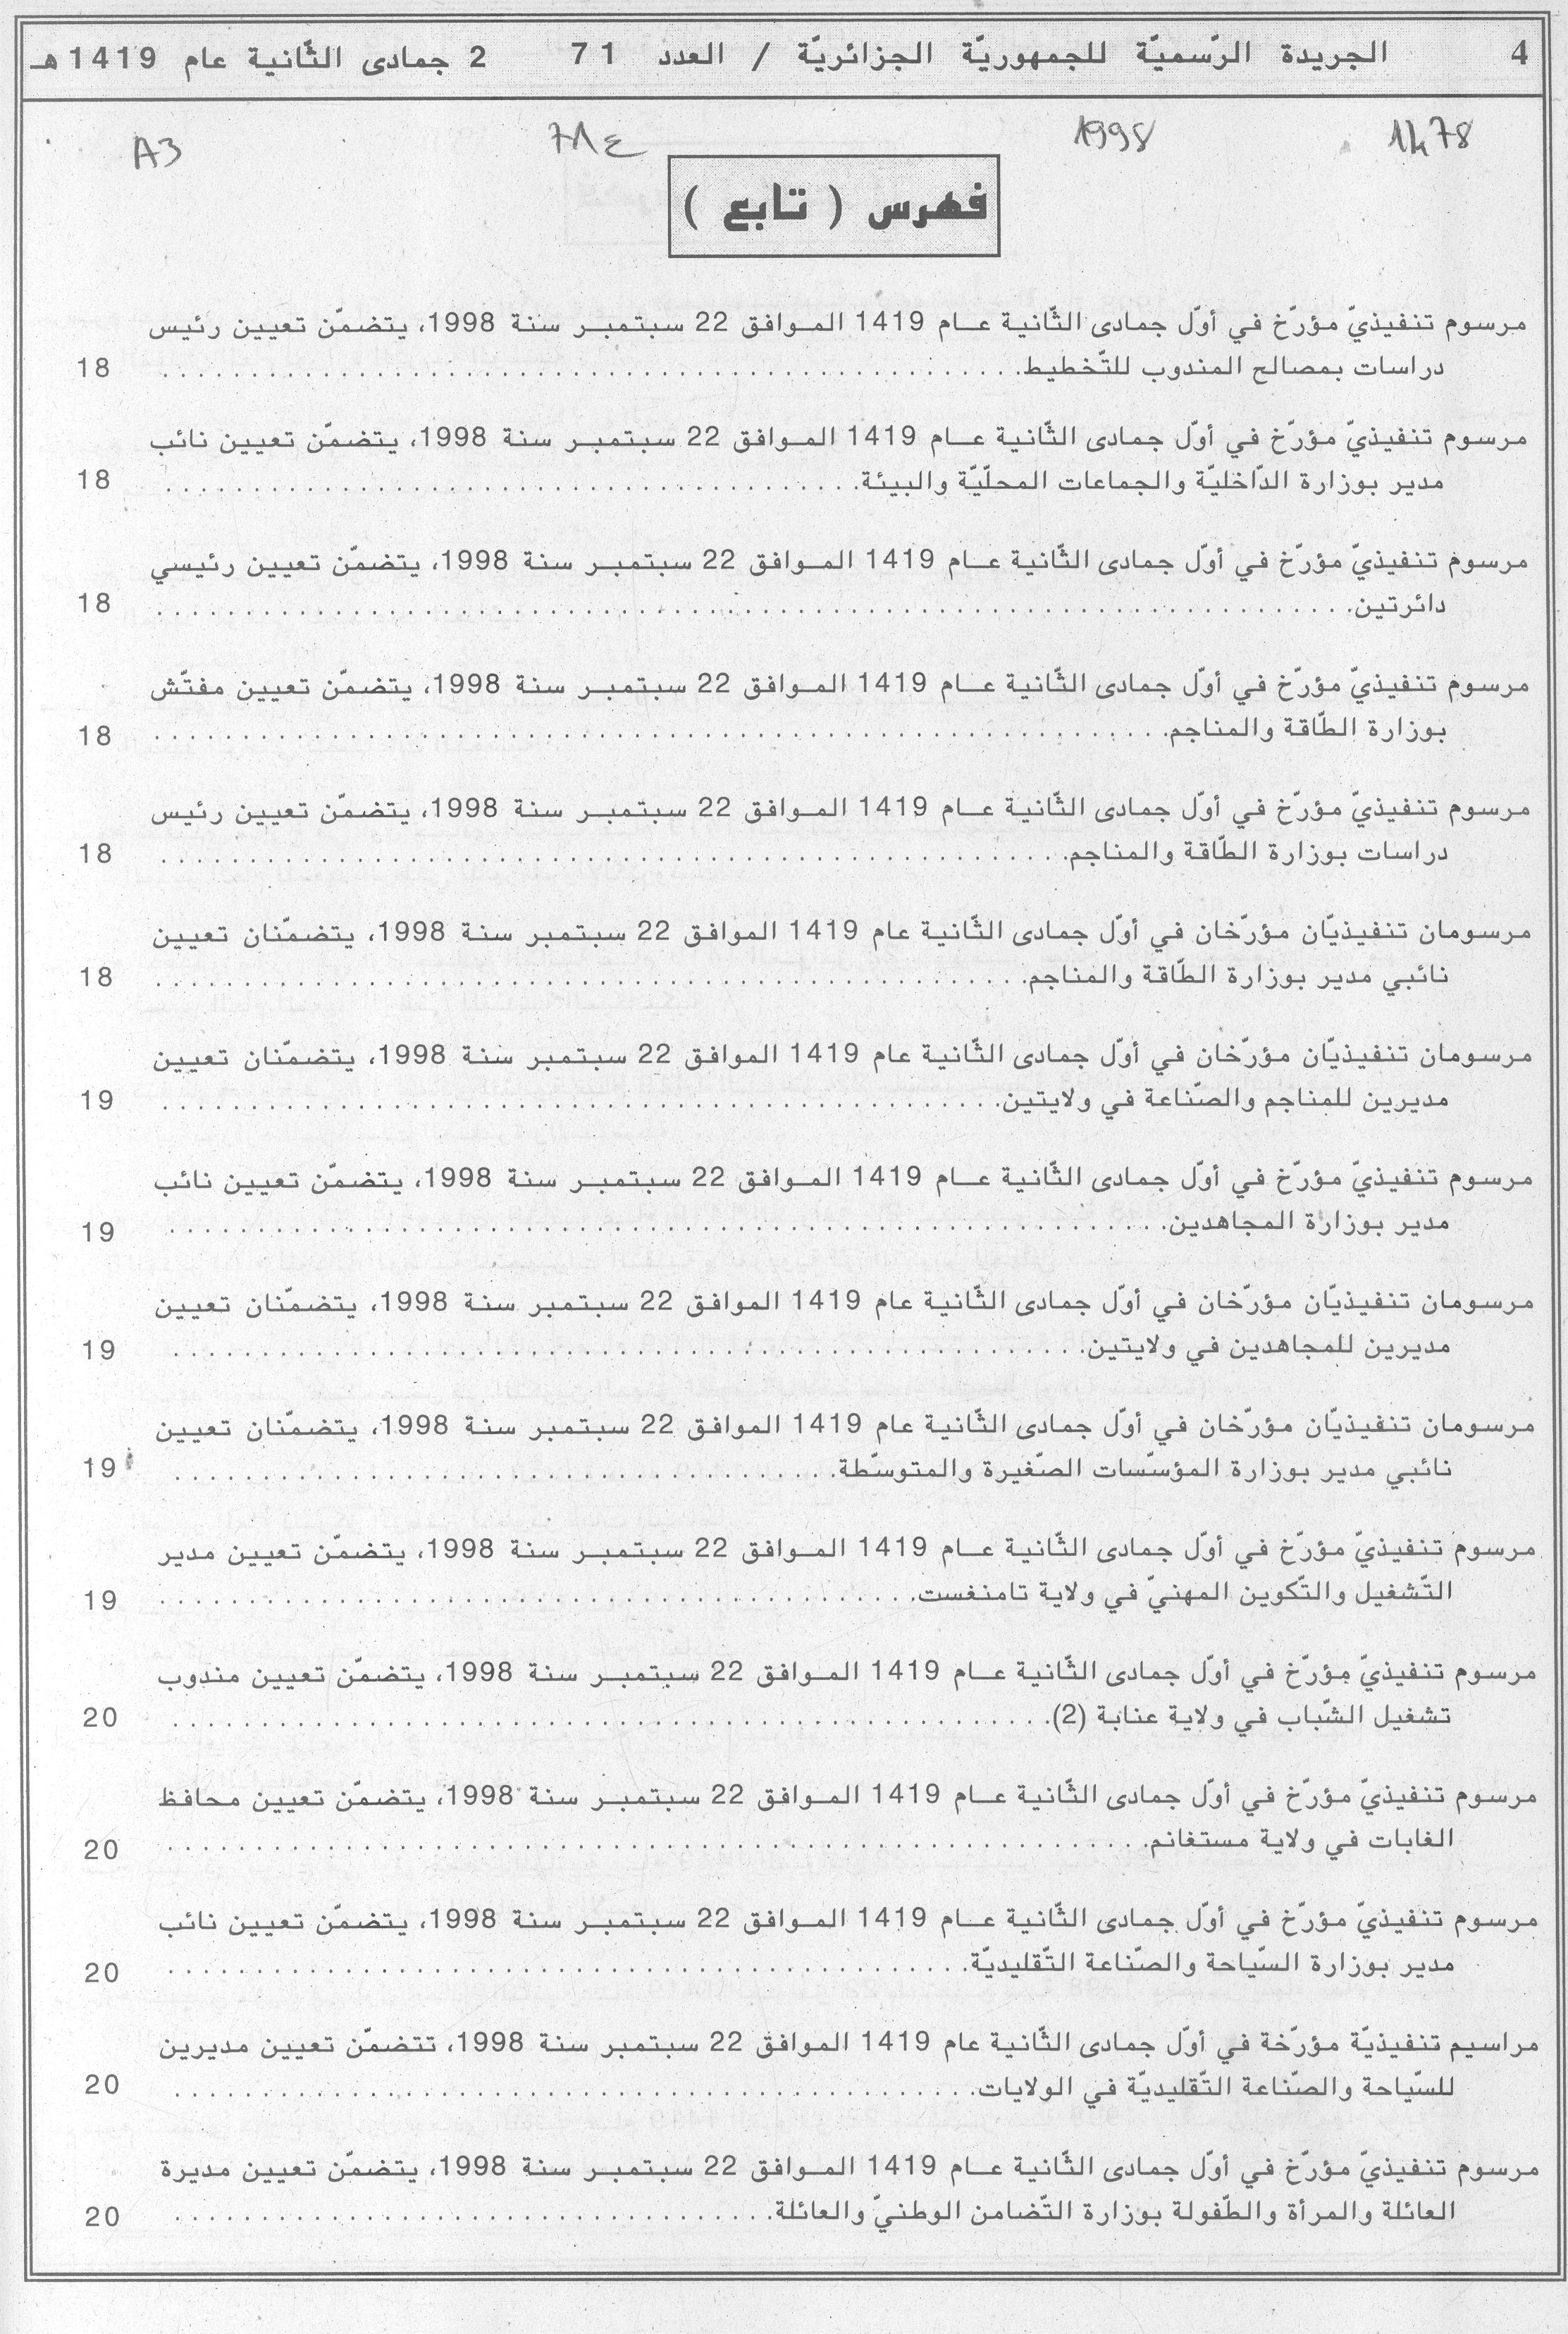 4 الجريدة الرّسميّة للجمهوريّة الجزائريّة / العدد 71 2 جمادى الثّانية عام 1419 هـ
1478 1998 71 ع A3
فهرس ( تابع )
مرسوم تنفيذيّ مؤرّخ في أوّل جمادى الثّانية عــام 1419 المــوافق 22 سبتمبــر سنة 1998، يتضمّن تعيين رئيس
دراسات بمصالح المندوب للتّخطيط. . . . . . . . . . . . . . . . . . . . 18
مرسوم تنفيذيّ مؤرّخ في أوّل جمادى الثّانية عــام 1419 المــوافق 22 سبتمبــر سنة 1998، يتضمّن تعيين نائب
مدير بوزارة الدّاخليّة والجماعات المحلّيّة والبيئة. . . . . . . . . . . . . . . . . . . . 18
مرسوم تنفيذيّ مؤرّخ في أوّل جمادى الثّانية عــام 1419 المــوافق 22 سبتمبــر سنة 1998، يتضمّن تعيين رئيسي
دائرتين. . . . . . . . . . . . . . . . . . . . 18
مرسوم تنفيذيّ مؤرّخ في أوّل جمادى الثّانية عــام 1419 المــوافق 22 سبتمبــر سنة 1998، يتضمّن تعيين مفتّش
بوزارة الطّاقة والمناجم. . . . . . . . . . . . . . . . . . . . 18
مرسوم تنفيذيّ مؤرّخ في أوّل جمادى الثّانية عــام 1419 المــوافق 22 سبتمبــر سنة 1998، يتضمّن تعيين رئيس
دراسات بوزارة الطّاقة والمناجم. . . . . . . . . . . . . . . . . . . . 18
مرسومان تنفيذيّان مؤرّخان في أوّل جمادى الثّانية عام 1419 الموافق 22 سبتمبر سنة 1998، يتضمّنان تعيين
نائبي مدير بوزارة الطّاقة والمناجم. . . . . . . . . . . . . . . . . . . . 18
مرسومان تنفيذيّان مؤرّخان في أوّل جمادى الثّانية عام 1419 الموافق 22 سبتمبر سنة 1998، يتضمّنان تعيين
مديرين للمناجم والصّناعة في ولايتين. . . . . . . . . . . . . . . . . . . . 19
مرسوم تنفيذيّ مؤرّخ في أوّل جمادى الثّانية عــام 1419 المــوافق 22 سبتمبــر سنة 1998، يتضمّن تعيين نائب
مدير بوزارة المجاهدين. . . . . . . . . . . . . . . . . . . . 19
مرسومان تنفيذيّان مؤرّخان في أوّل جمادى الثّانية عام 1419 الموافق 22 سبتمبر سنة 1998، يتضمّنان تعيين
مديرين للمجاهدين في ولايتين. . . . . . . . . . . . . . . . . . . . 19
مرسومان تنفيذيّان مؤرّخان في أوّل جمادى الثّانية عام 1419 الموافق 22 سبتمبر سنة 1998، يتضمّنان تعيين
نائبي مدير بوزارة المؤسّسات الصّغيرة والمتوسّطة. . . . . . . . . . . . . . . . . . . . 19
مرسوم تنفيذيّ مؤرّخ في أوّل جمادى الثّانية عــام 1419 المــوافق 22 سبتمبــر سنة 1998، يتضمّن تعيين مدير
التّشغيل والتّكوين المهنيّ في ولاية تامنغست. . . . . . . . . . . . . . . . . . . . 19
مرسوم تنفيذيّ مؤرّخ في أوّل جمادى الثّانية عــام 1419 المــوافق 22 سبتمبــر سنة 1998، يتضمّن تعيين مندوب
تشغيل الشّباب في ولاية عنابة (2). . . . . . . . . . . . . . . . . . . . 20
مرسوم تنفيذيّ مؤرّخ في أوّل جمادى الثّانية عــام 1419 المــوافق 22 سبتمبــر سنة 1998، يتضمّن تعيين محافظ
الغابات في ولاية مستغانم. . . . . . . . . . . . . . . . . . . . 20
مرسوم تنفيذيّ مؤرّخ في أوّل جمادى الثّانية عــام 1419 المــوافق 22 سبتمبــر سنة 1998، يتضمّن تعيين نائب
مدير بوزارة السّياحة والصّناعة التّقليديّة. . . . . . . . . . . . . . . . . . . . 20
مراسيم تنفيذيّة مؤرّخة في أوّل جمادى الثّانية عام 1419 الموافق 22 سبتمبر سنة 1998، تتضمّن تعيين مديرين
للسّياحة والصّناعة التّقليديّة في الولايات. . . . . . . . . . . . . . . . . . . . 20
مرسوم تنفيذيّ مؤرّخ في أوّل جمادى الثّانية عــام 1419 المــوافق 22 سبتمبــر سنة 1998، يتضمّن تعيين مديرة
العائلة والمرأة والطّفولة بوزارة التّضامن الوطنيّ والعائلة. . . . . . . . . . . . . . . . . . . . 20